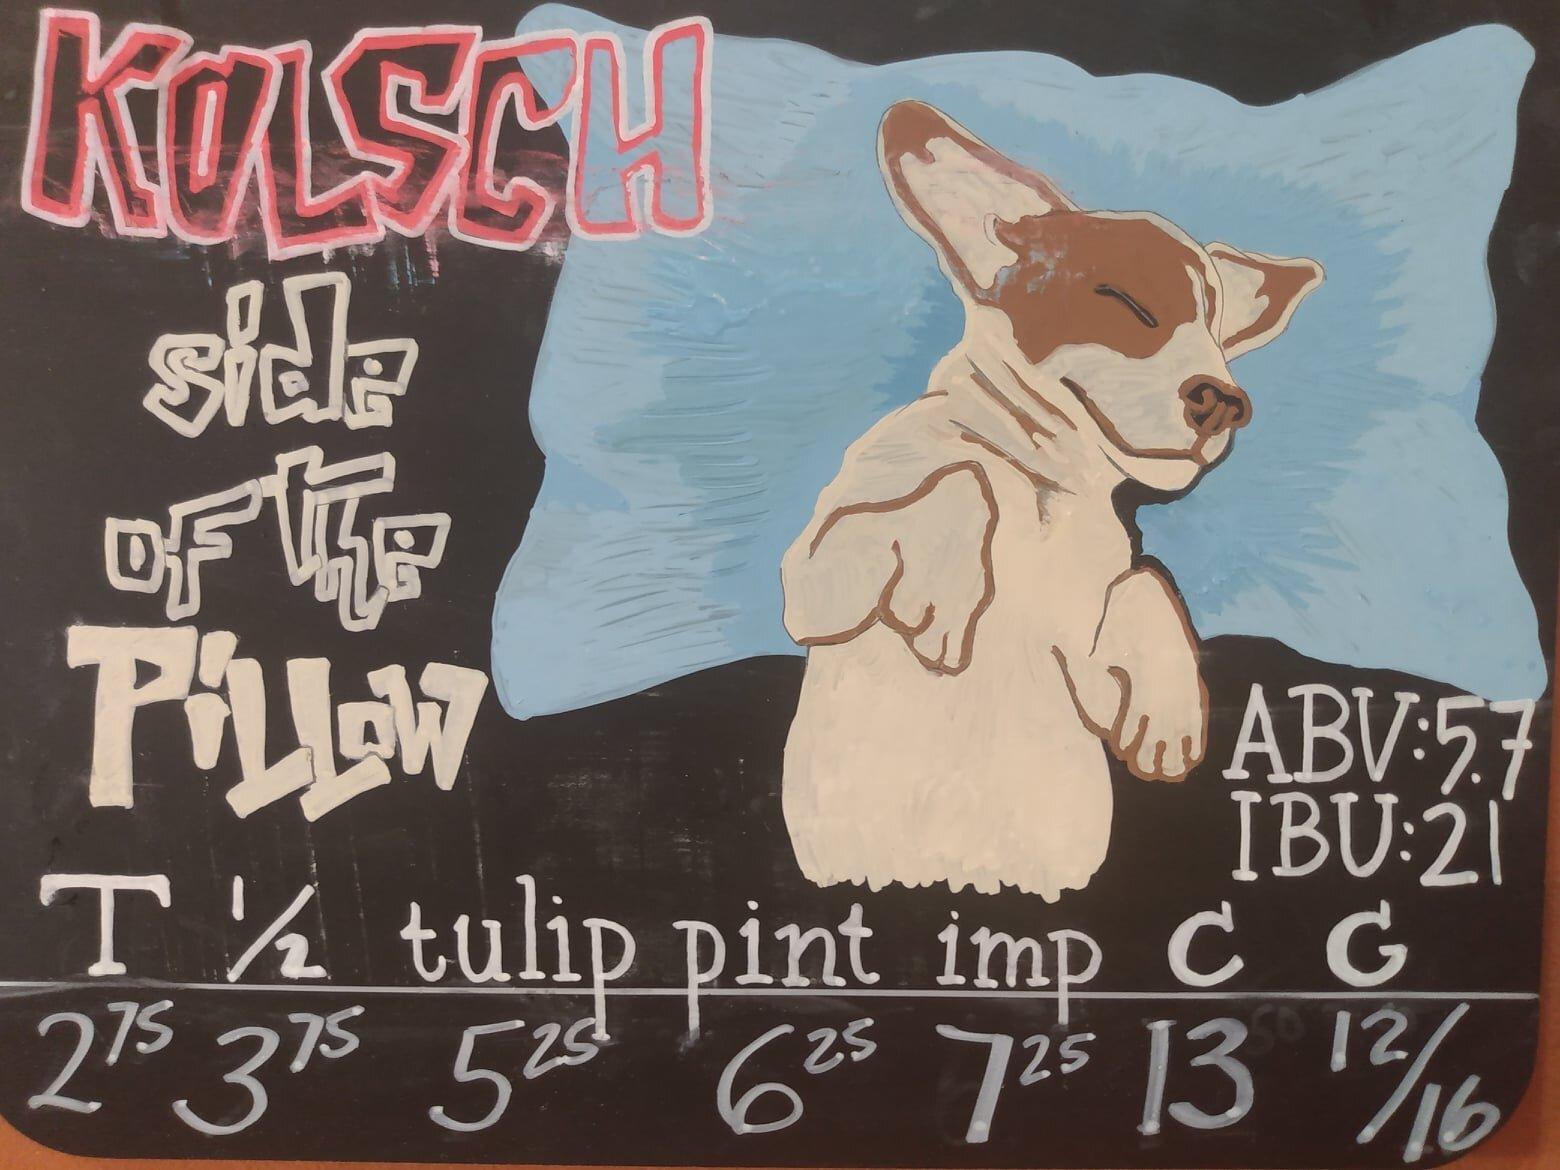 KOLSCH
side
of the
PiLLOW
ABV:5.7
IBU:21
T 1/2 tulip pint imp C G
2 75 3 75 5 25 6 25 7 25 13 12/16